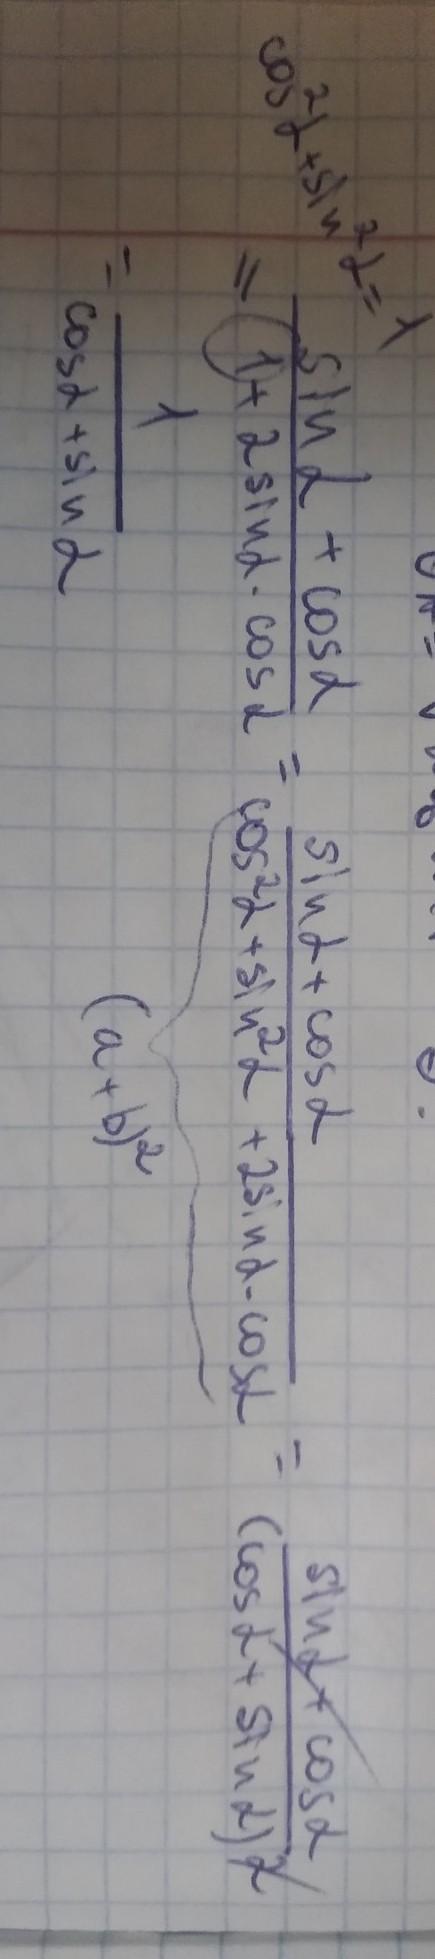 cos²α + sin²α = 1
= (sin α + cos α)/(1 + 2 sin α · cos α) = (sin α + cos α)/(cos²α + sin²α + 2 sin α · cos α) = (sin α + cos α)/(cos α + sin α)²
(a + b)²
= 1/(cos α + sin α)